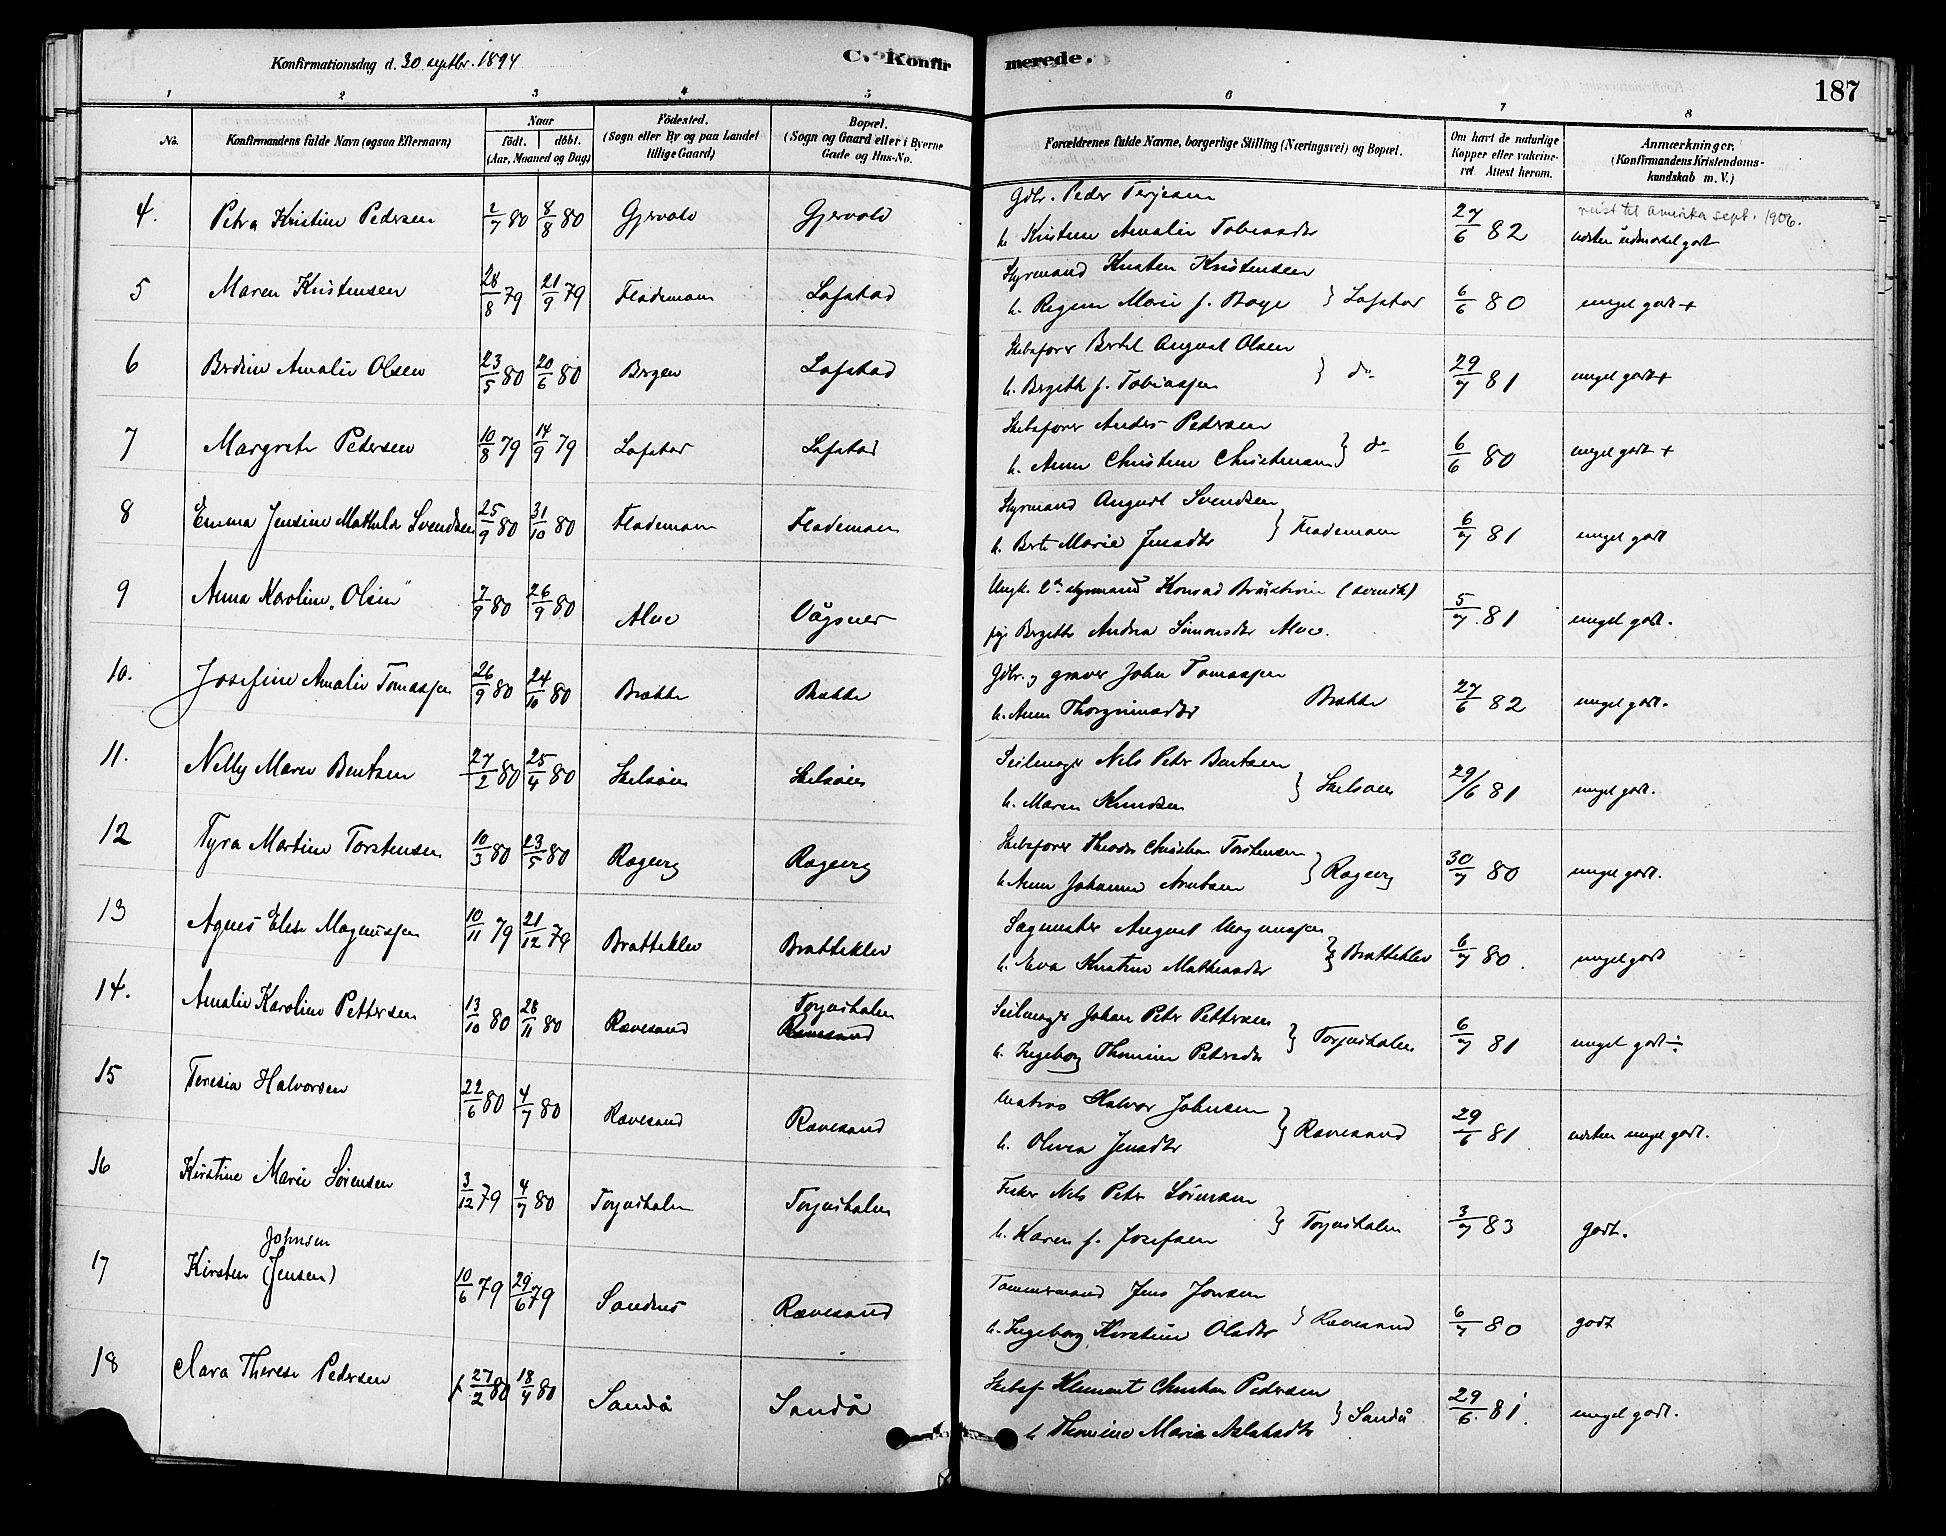 Konfirmationsdag d. 30 septbr. 1894
C. Konfirmerede.
187
1 2 3 4 5 6 7 8
No. Konfirmandens fulde Navn (ogsaa Efternavn) Naar født. døbt. (Aar, Maaned og Dag) Fødested. (Sogn eller By og paa Landet tillige Gaard) Bopæl. (Sogn og Gaard eller i Byerne Gade og Hus-No. Forældrenes fulde Navne, borgerlige Stilling (Næringsvei) og Bopæl. Om havt de naturlige Kopper eller vakcineret Attest herom. Anmærkninger. (Konfirmandens Kristendomskundskab m. V.)
4. Petra Kristine Pedersen 2/7 80 8/8 80 Gjervold Gjervold Gdbr. Peder Terjesen
h. Kristine Amalie Tobiasdtr 27/6 82 reist til Amerika sept. 1906.
næsten udmærket godt
5 Maren Kristensen 28/8 79 21/9 79 Flademoen Lofstad Styrmand Knaten Kristensen
h. Regine Marie f. Boye } Lofstad 6/6 80 meget godt +
6 Berdine Amalie Olsen 23/5 80 20/6 80 Bergen Lofstad Skibsfører Bertel August Olsen
h. Bergith f. Tobiassen } do 29/7 81 meget godt +
7 Margrete Pedersen 10/8 79 14/9 79 Lofstad Lofstad Skibsfører Anders Pedersen
h. Anne Christine Christensen } do 6/6 80 meget godt +
8 Emma Jensine Mathilde Svendsen 25/9 80 31/10 80 Flademoen Flademoen Styrmand August Svendsen
h. Berte Marie Jensdtr } Flademoen 6/7 81 meget godt
9 Anna Karoline "Olsen" 7/9 80 26/9 80 Alve Vågsnes Ungk. 2den styrmand Konrad Brüström (svensk)
pige Bergitte Andrea Simonsdtr Alve. 5/7 81 meget godt.
10. Josefine Amalie Tomassen 26/9 80 24/10 80 Brække Brække Gdbr. og graver John Tomassen
h. Anne Thorgrimsdtr Brække 27/6 82 meget godt.
11. Nelly Maren Bentsen 27/2 80 25/4 80 Skilsøen Skilsøen Seilmager Nils Peter Bentsen
h. Maren Knudsen } Skilsøen 29/6 81 meget godt.
12 Tyra Martine Torstensen 10/3 80 23/5 80 Rægevig Rægevig Skibsfører Theodor Christian Torstensen
h. Anne Johanne Arntsen } Rægevig 30/7 80 meget godt.
13 Agnes Elise Magnussen 10/11 79 21/12 79 Bratteklev Bratteklev Sagmester August Magnussen
h. Eva Kristine Mathiasdtr } Bratteklev 6/7 80. meget godt
14. Amalie Karoline Pettersen 13/10 80 28/11 80 Rævesand Torjusholm
Rævesand Seilmager Johan Peter Pettersen
h. Ingeborg Thomine Petersdtr } Torjusholm 6/7 81 meget godt ÷
15 Teresia Halvorsen 22/6 80 4/7 80 Rævesand Rævesand Matros Halvor Johnsen
h. Olivia Jensdtr } Rævesand 29/6 81 næsten meget godt.
16 Kirstine Marie Sørensen 3/12 79 4/7 80 Torjusholm Torjusholm Fisker Nels Peter Sørensen
h. Karen f. Josefsen } Torjusholm 3/7 83 godt.
17 Johnsen
Kirsten (Jensen) 10/6 79 29/6 79 Sandnes Rævesand Tømmermand Jens Jonsen
h. Ingeborg Kirstine Olsdtr } Rævesand 6/7 80 godt
18 Clara Therese Pedersen 27/2 80 18/4 80 Sandø Sandø Skibsf. Klement Christian Pedersen
h Thomine Maria Aslaksdtr } Sandø 29/6. 81. meget godt.